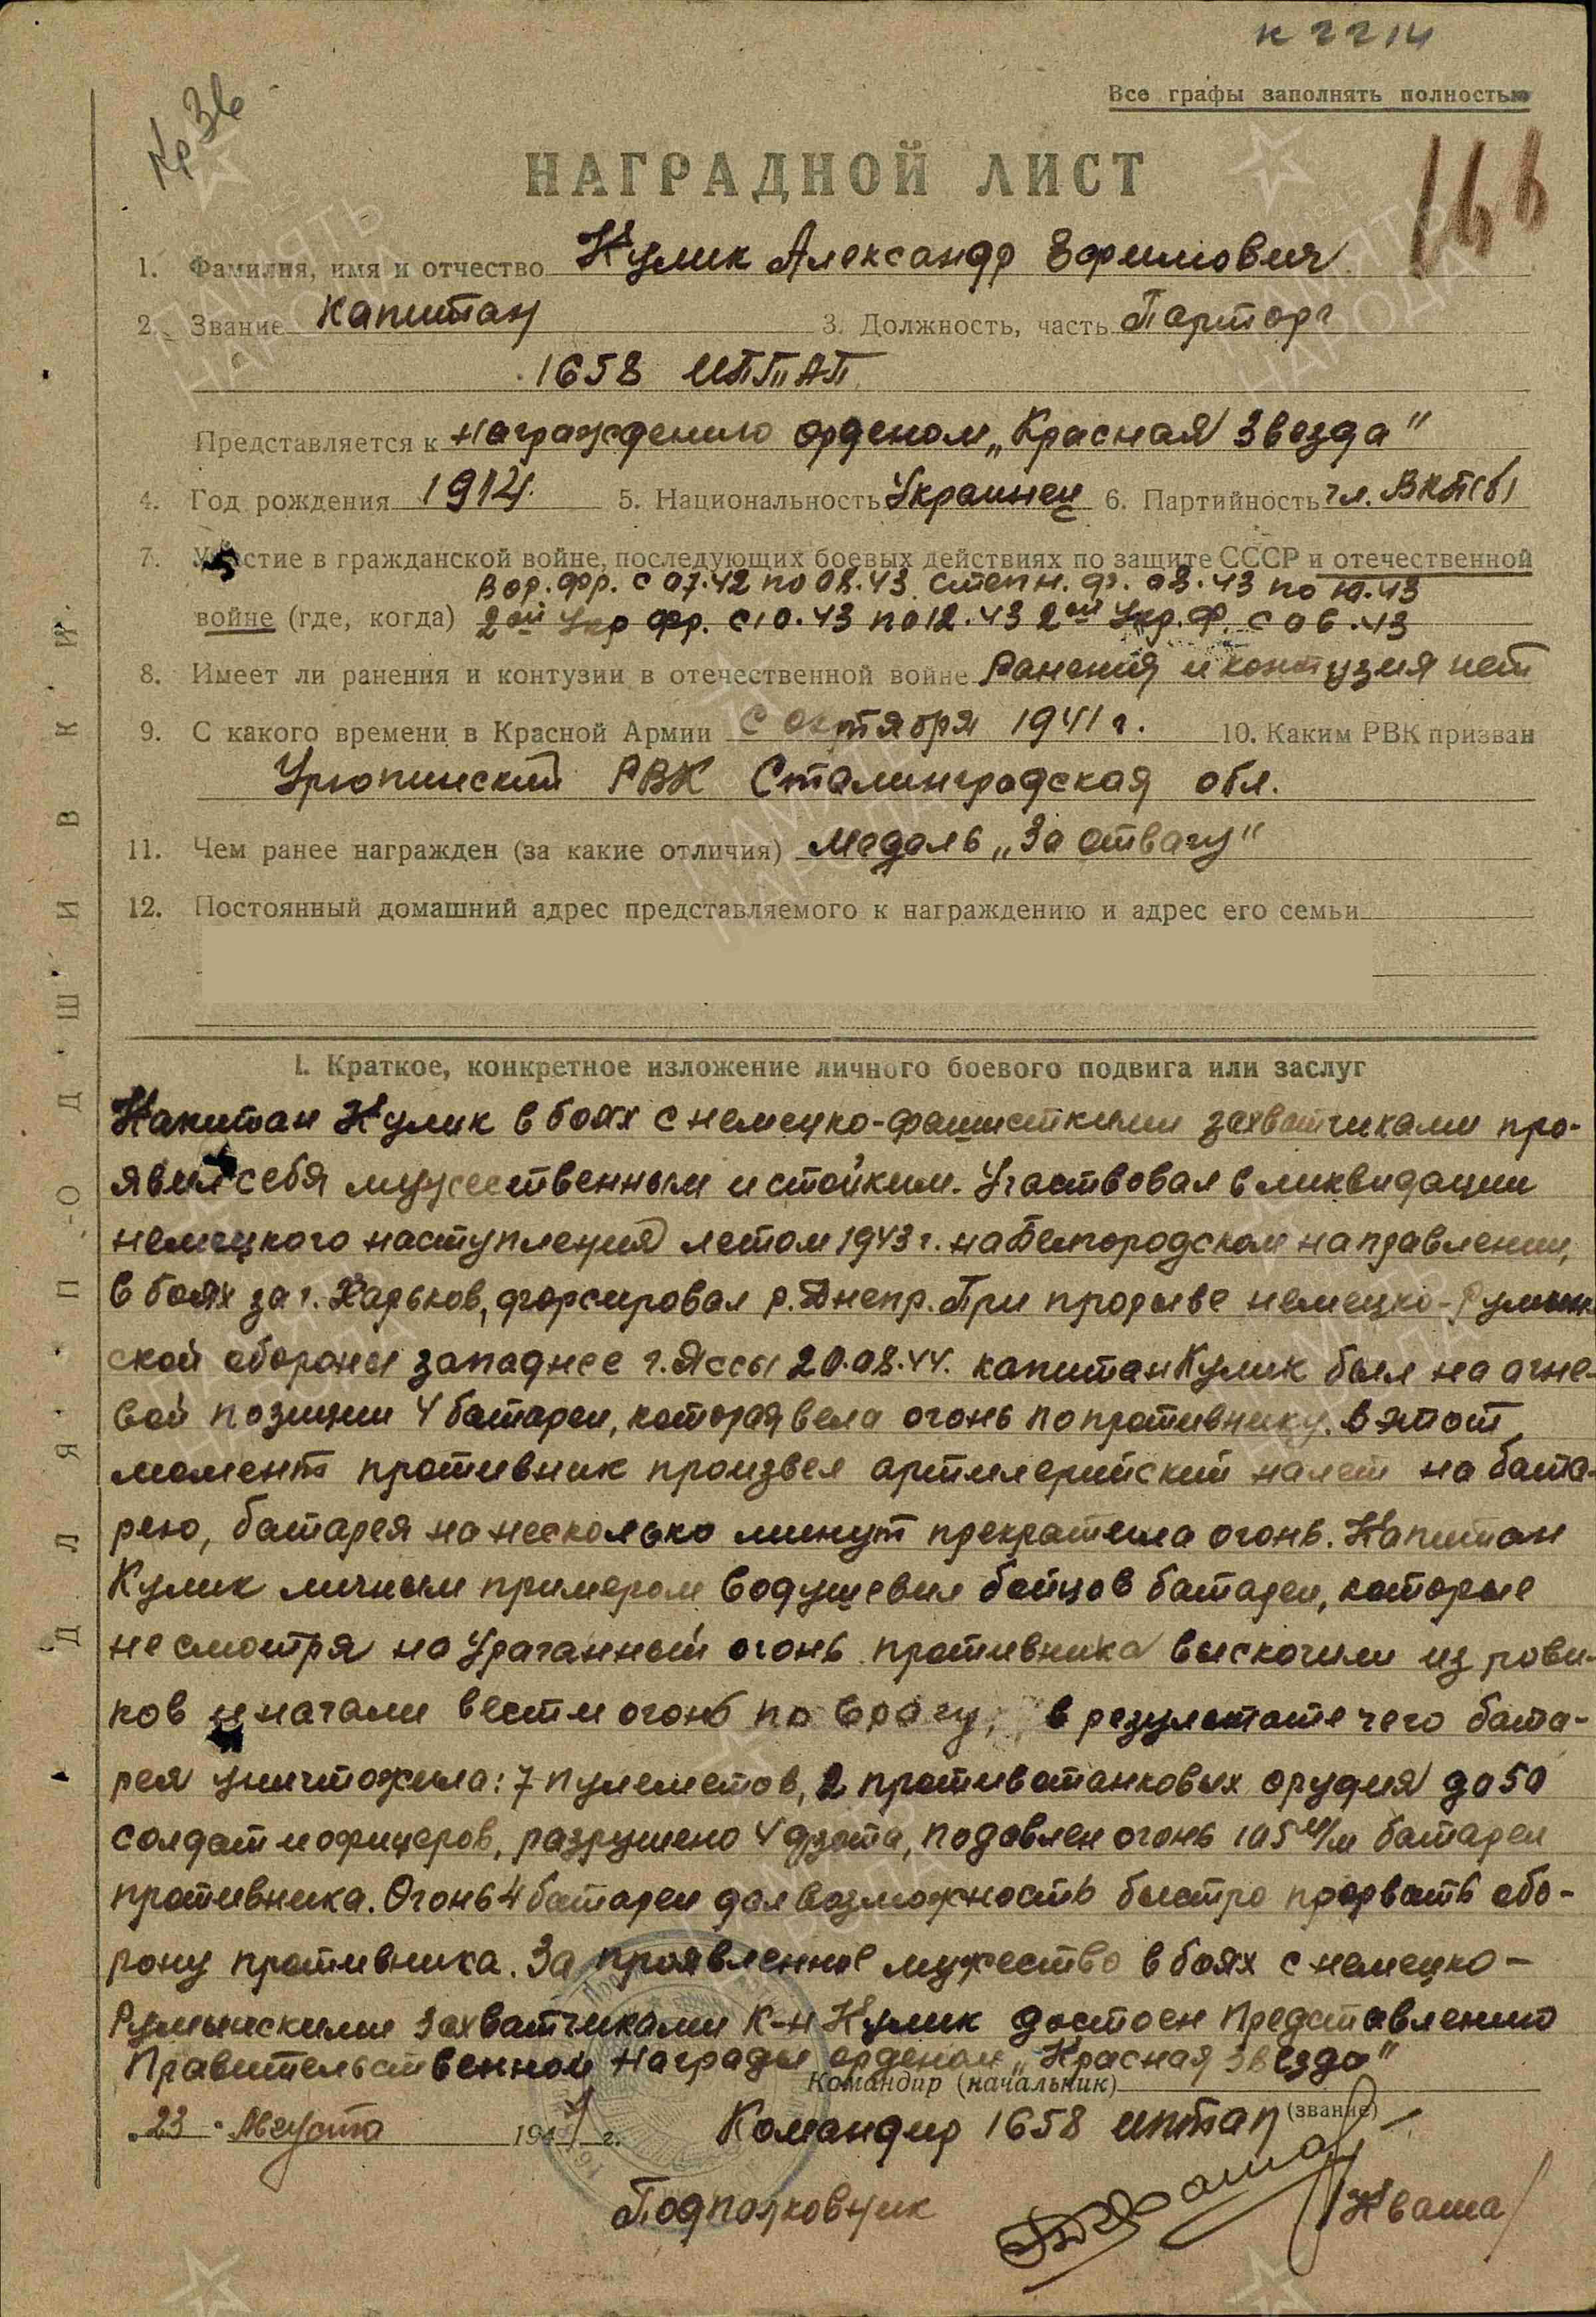 к 2214
№ 36
Все графы заполнять полностью
166
НАГРАДНОЙ ЛИСТ
1. Фамилия, имя и отчество Кулик Александр Ефимович
2. Звание Капитан 3. Должность, часть Парторг
1658 ИПТАП
Представляется к награждению орденом „Красная Звезда"
4. Год рождения 1914. 5. Национальность Украинец 6. Партийность чл. ВКП(б)
7. Участие в гражданской войне, последующих боевых действиях по защите СССР и отечественной
Вор. фр. с 07.42 по 08.43. Степн. фр. 08.43 по 10.43
войне (где, когда) 2ой Укр фр. с 10.43 по 12.43 2ой Укр. Ф. с 06.43
8. Имеет ли ранения и контузии в отечественной войне Ранения и контузия нет
9. С какого времени в Красной Армии с октября 1941 г. 10. Каким РВК призван
Урюпинский РВК Сталинградская обл.
11. Чем ранее награжден (за какие отличия) Медаль „За отвагу"
12. Постоянный домашний адрес представляемого к награждению и адрес его семьи
I. Краткое, конкретное изложение личного боевого подвига или заслуг
Капитан Кулик в боях с немецко-фашисткими захватчиками про-
явил себя мужественным и стойким. Участвовал в ликвидации
немецкого наступления летом 1943 г. на Белгородском направлении,
в боях за г. Харьков, форсировал р. Днепр. При прорыве немецко-румын
ской обороны западнее г. Яссы 20.08.44. капитан Кулик был на огне-
вой позиции 4 батареи, которая вела огонь по противнику. В этот
момент противник произвел артилерийский налет на бата-
рею, батарея на несколько минут прекратила огонь. Капитан
Кулик личным примером водушевил бойцов батареи, которые
не смотря на ураганный огонь противника выскочили из рови-
ков и начали вести огонь по врагу, в результате чего бата-
рея уничтожила: 7 пулеметов, 2 противотанковых орудия до 50
солдат и офицеров, разрушено 4 дзота, подавлен огонь 105 м/м батареи
противника. Огонь 4 батареи дал возможность быстро прорвать обо-
рону противника. За проявленное мужество в боях с немецко-
Румынскими захватчиками К-н Кулик достоен Представлению
Правительственной Награды орденом „Красная Звезда"
Командир (начальник)
(звание)
„23" Августа 1944 г. Командир 1658 иптап
Подполковник /Кваша/
ДЛЯ ПОДШИВКИ
ПАМЯТЬ
НАРОДА